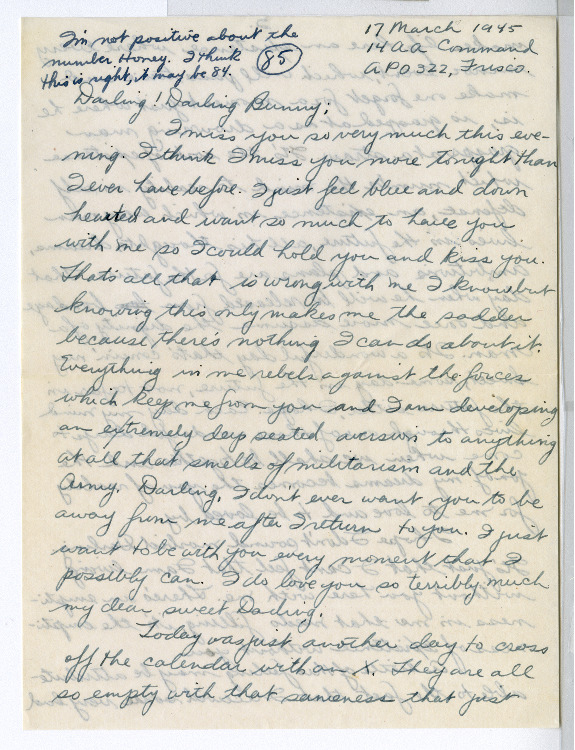 I'm not positive about the
number Honey. I think
this is right, it may be 84.
85
17 March 1945
14 AA Command
APO 322, Frisco.
Darling! Darling Bunny;
I miss you so very much this eve-
ning. I think I miss you more tonight than
I ever have before. I just feel blue and down
hearted and want so much to have you
with me so I could hold you and kiss you.
That's all that is wrong with me I know but
knowing this only makes me the sadder
because there's nothing I can do about it.
Everything in me rebels against the forces
which keep me from you and I am developing
an extremely deep seated aversion to anything
at all that smells of militarism and the
Army. Darling, I don't ever want you to be
away from me after I return to you. I just
want to be with you every moment that I
possibly can. I do love you so terribly much
my dear, sweet Darling.
Today was just another day to cross
off the calendar with an X. They are all
so empty with that sameness that just